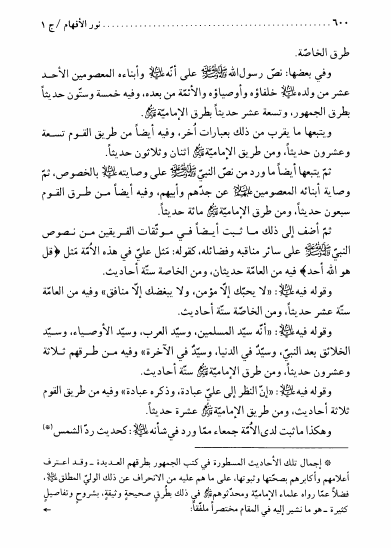 ٦٠٠ ........................................ نور الأفهام / ج ١
طرق الخاصّة.
وفي بعضها: نصّ رسول الله ﷺ على أنّه وأبناءه المعصومين الأحد
عشر من ولده خلفاؤه وأوصياؤه والأئمّة من بعده، وفيه خمسة وستّون حديثاً
بطرق الجمهور، وتسعة عشر حديثاً بطرق الإماميّة.
ويتبعها ما يقرب من ذلك بعبارات اُخر، وفيه أيضاً من طريق القوم تسعة
وعشرون حديثاً، ومن طريق الإماميّة اثنان وثلاثون حديثاً.
ثمّ يتبعها أيضاً ما ورد من نصّ النبيّ ﷺ على وصايته بالخصوص، ثمّ
وصاية أبنائه المعصومين عن جدّهم وأبيهم، وفيه أيضاً من طرق القوم
سبعون حديثاً، ومن طرق الإماميّة مائة حديثاً.
ثمّ أضف إلى ذلك ما ثبت أيضاً في موثّقات الفريقين من نصوص
النبيّ ﷺ على سائر مناقبه وفضائله، كقوله: مثل عليّ في هذه الاُمّة مَثل ﴿قل
هو الله أحد﴾ فيه من العامّة حديثان، ومن الخاصة ستّة أحاديث.
وقوله فيه: «لا يحبّك إلّا مؤمن، ولا يبغضك إلّا منافق» وفيه من العامة
ستّة عشر حديثاً، ومن الخاصّة ستّة أحاديث.
وقوله فيه: «أنّه سيّد المسلمين، وسيّد العرب، وسيّد الأوصياء، وسيّد
الخلائق بعد النبيّ، وسيّدٌ في الدنيا، وسيّدٌ في الآخرة» وفيه من طرقهم ثلاثة
وعشرون حديثاً، ومن طرق الإماميّة ستّة أحاديث.
وقوله فيه: «إنّ النظر إلى عليّ عبادة، وذكره عبادة» وفيه من طريق القوم
ثلاثة أحاديث، ومن طريق الإماميّة عشرة حديثاً.
وهكذا ما ثبت لدى الاُمّة جمعاء ممّا ورد في شأنه: كحديث ردّ الشمس (*)
* إجمال تلك الأحاديث المسطورة في كتب الجمهور بطرقهم العديدة ــ وقد اعترف
أعلامهم وأكابرهم بصحّتها وثبوتها، على ما هم عليه من الانحراف عن ذلك الوليّ المطلق،
فضلاً عمّا رواه علماء الإماميّة ومحدّثوهم في ذلك بطُرقٍ صحيحةٍ وثيقةٍ، بشروحٍ وتفاصيلٍ
كثيرة ــ هو ما نشير إليه في المقام مختصراً ملفّقاً: ←